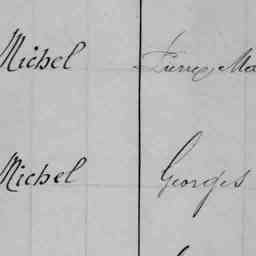 Michel Pierre Ma
Michel Georges